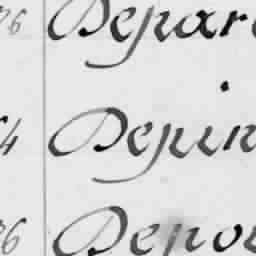 76 Depar
4 Depin
36 Depou